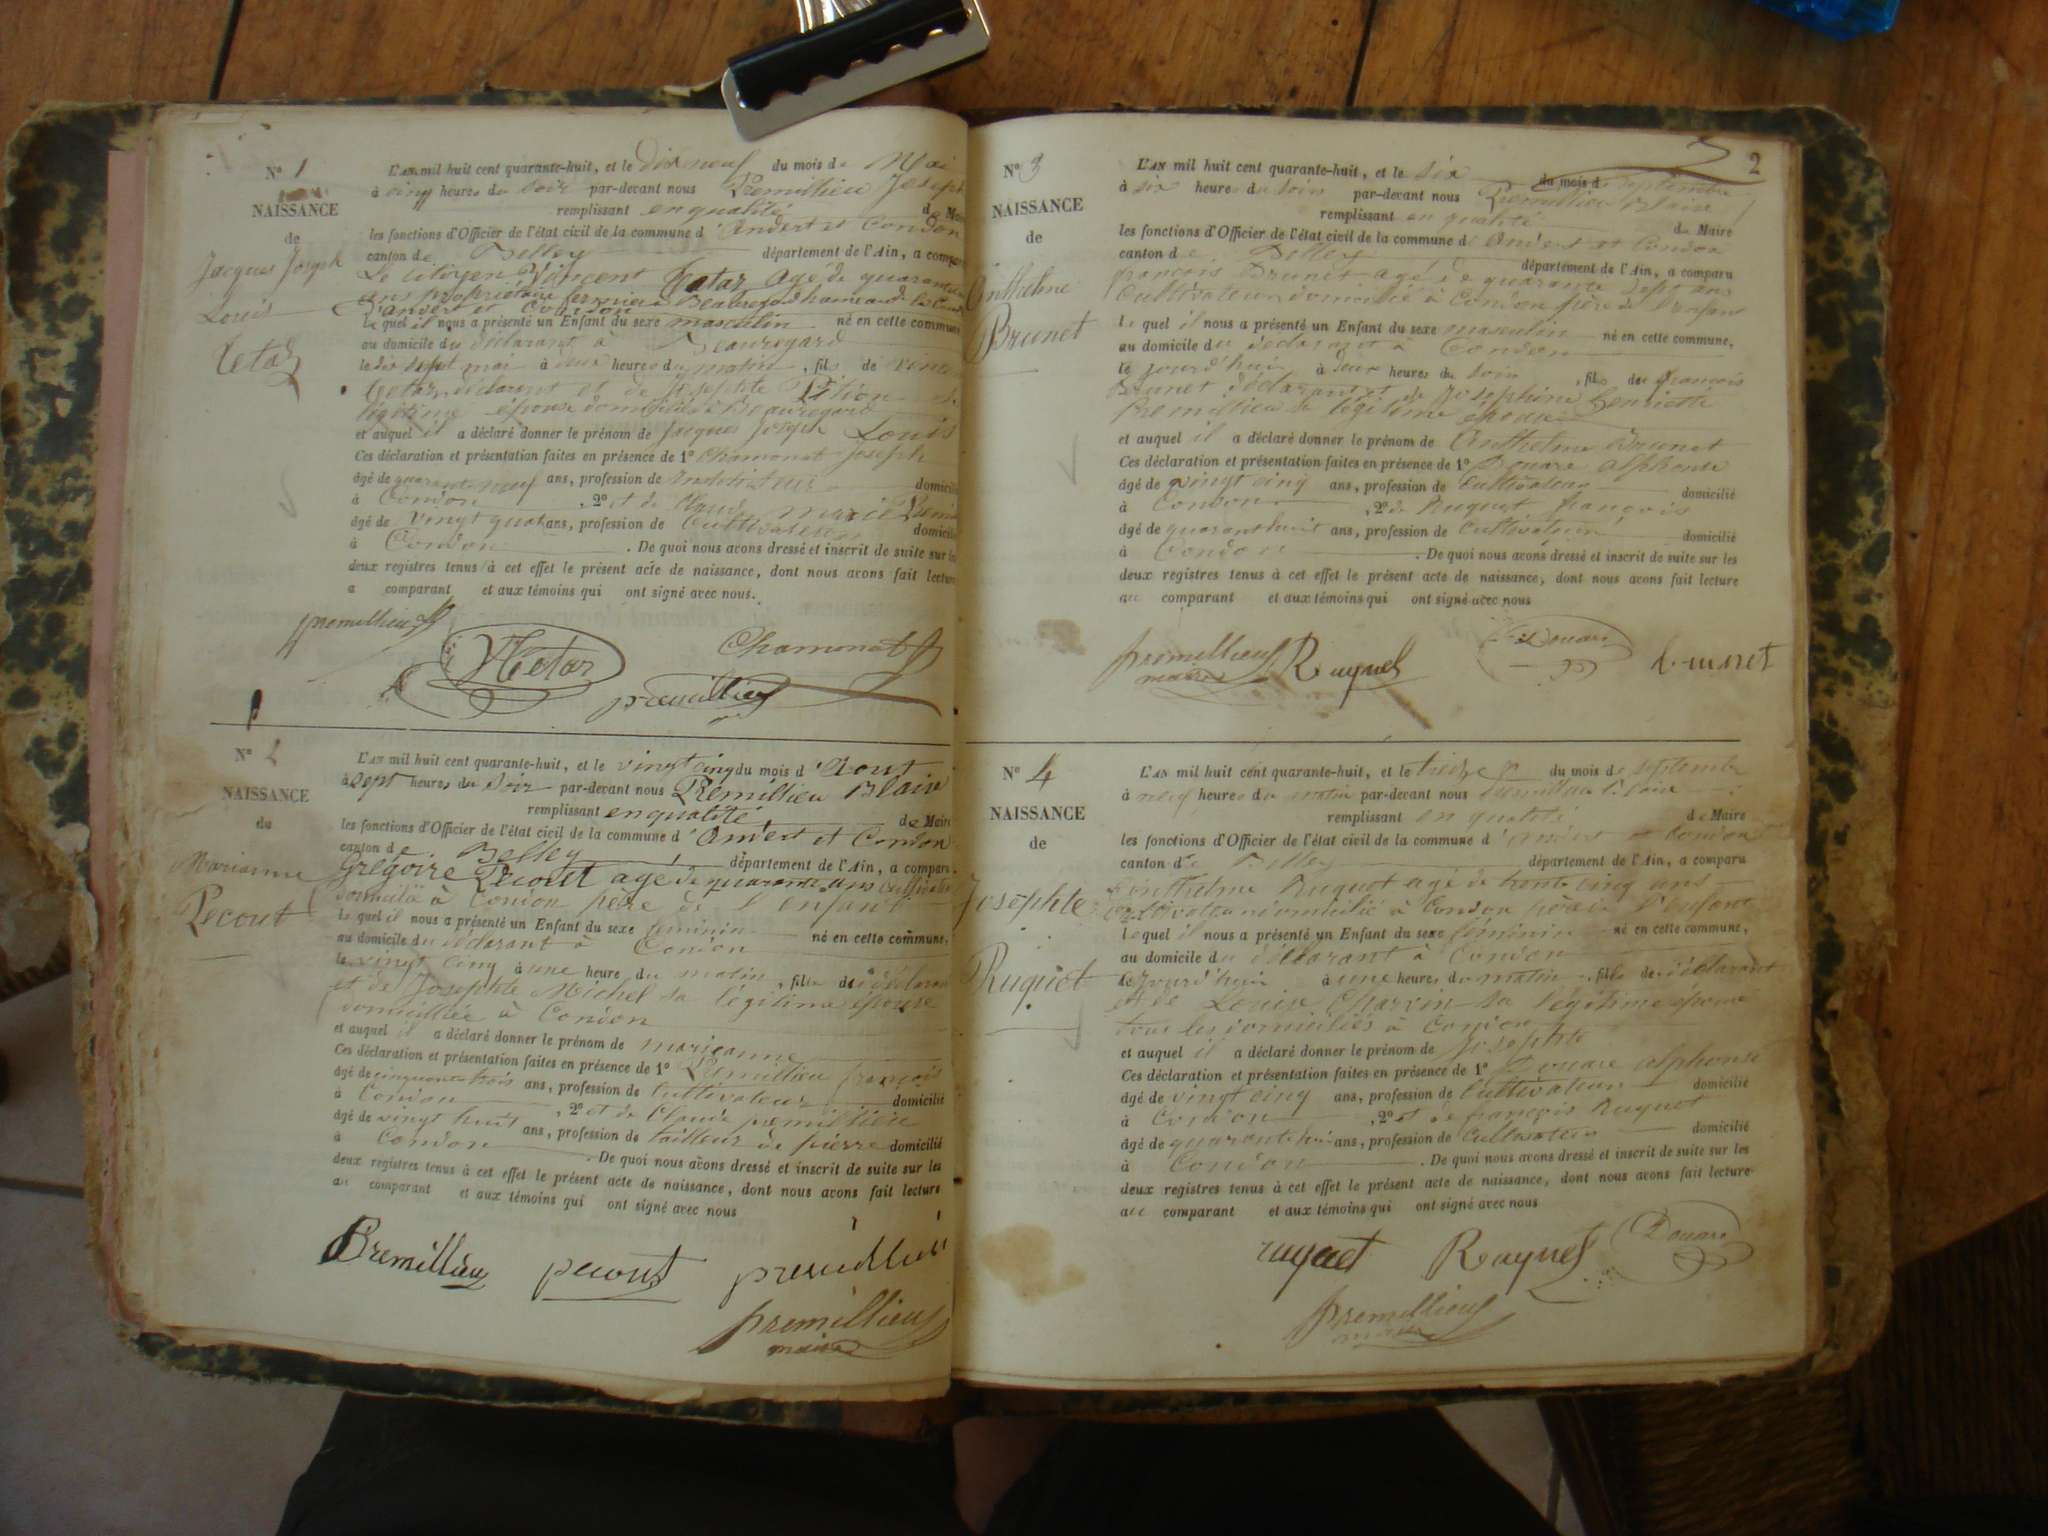 Nº 1
NAISSANCE
de
Jacques Joseph
Louis
Tetaz
L'AN mil huit cent quarante-huit, et le dix neuf du mois de Mai
à cinq heures du soir par-devant nous Premillieu Joseph
remplissant en qualité de Maire
les fonctions d'Officier de l'état civil de la commune d'Andert et Condon
canton de Belley département de l'Ain, a comparu
Le citoyen Vincent Tetaz agé de quarante
ans propriétaire fermier à Beauregard hameau de la
d'andert et Condon
Le quel il nous a présenté un Enfant du sexe masculin né en cette commune
au domicile du déclarant à Beauregard
le dix sept mai à deux heures du matin, fils de
Tetaz déclarant et de Josephte sa
légitime épouse domiciliés à Beauregard
et auquel il a déclaré donner le prénom de Jacques Joseph Louis
Ces déclaration et présentation faites en présence de 1º Chamonat Joseph
âgé de quarante neuf ans, profession de Instituteur domicilié
à Condon, 2º et de Claude marie
âgé de vingt quatre ans, profession de Cultivateur domicilié
à Condon. De quoi nous avons dressé et inscrit de suite sur les
deux registres tenus à cet effet le présent acte de naissance, dont nous avons fait lecture
a comparant et aux témoins qui ont signé avec nous.
premillieu
VTetaz
Chamonat
premillieu
Nº 2
NAISSANCE
de
Marianne
Pecout
L'AN mil huit cent quarante-huit, et le vingt cinq du mois d'Aout
à sept heures du soir par-devant nous Premillieu Blaise
remplissant en qualité de Maire
les fonctions d'Officier de l'état civil de la commune d'Andert et Condon
canton de Belley département de l'Ain, a comparu
Grégoire Pecout agé de quarante ans cultivateur
domicilié à Condon père de l'enfant
Le quel il nous a présenté un Enfant du sexe féminin né en cette commune,
au domicile du déclarant à Condon
le vingt cinq à une heure du matin, fille du déclarant
et de Josephte Michel sa légitime épouse
domiciliée à Condon
et auquel il a déclaré donner le prénom de marieanne
Ces déclaration et présentation faites en présence de 1º Premillieu françois
âgé de cinquante trois ans, profession de Cultivateur domicilié
à Condon, 2º et de Claude premillieu
âgé de vingt huit ans, profession de tailleur de pierre domicilié
à Condon. De quoi nous avons dressé et inscrit de suite sur les
deux registres tenus à cet effet le présent acte de naissance, dont nous avons fait lecture
au comparant et aux témoins qui ont signé avec nous
Premillieu pecout premillieu
premillieu
maire
2
Nº 3
NAISSANCE
de
Anthelme
Brunet
L'AN mil huit cent quarante-huit, et le six du mois de septembre
à six heures du soir par-devant nous Premillieu Blaise
remplissant en qualité de Maire
les fonctions d'Officier de l'état civil de la commune d'Andert et Condon
canton de Belley département de l'Ain, a comparu
françois Brunet agé de quarante sept ans
Cultivateur domicilié à Condon père de l'enfant
Le quel il nous a présenté un Enfant du sexe masculin né en cette commune,
au domicile du déclarant à Condon
le jourd'hui à deux heures du soir, fils de françois
Brunet déclarant et de Joséphine henriette
Premillieu sa légitime épouse
et auquel il a déclaré donner le prénom de Anthelme Brunet
Ces déclaration et présentation faites en présence de 1º Douare alphonse
âgé de vingt cinq ans, profession de Cultivateur domicilié
à Condon, 2º de Ruquet françois
âgé de quarante huit ans, profession de Cultivateur domicilié
à Condon. De quoi nous avons dressé et inscrit de suite sur les
deux registres tenus à cet effet le présent acte de naissance, dont nous avons fait lecture
au comparant et aux témoins qui ont signé avec nous
premillieu
maire
Ruquet
Douare
Nº 4
NAISSANCE
de
Josephte
Ruquet
L'AN mil huit cent quarante-huit, et le treize du mois de septembre
à neuf heures du matin par-devant nous premillieu Blaise
remplissant en qualité de Maire
les fonctions d'Officier de l'état civil de la commune d'andert et Condon
canton de Belley département de l'Ain, a comparu
Anthelme Ruquet agé de trente cinq ans
cultivateur domicilié à Condon père de l'enfant
Lequel il nous a présenté un Enfant du sexe féminin né en cette commune,
au domicile du déclarant à Condon
le jourd'hui à une heures du matin, fille du déclarant
et de Louise Charvin sa légitime épouse
tous les domiciliés à Condon
et auquel il a déclaré donner le prénom de Josephte
Ces déclaration et présentation faites en présence de 1º Douare alphonse
âgé de vingt cinq ans, profession de Cultivateur domicilié
à Condon, 2º et de françois Ruquet
âgé de quarante huit ans, profession de Cultivateur domicilié
à Condon. De quoi nous avons dressé et inscrit de suite sur les
deux registres tenus à cet effet le présent acte de naissance, dont nous avons fait lecture
au comparant et aux témoins qui ont signé avec nous
ruquet Ruquet Douare
premillieu
maire